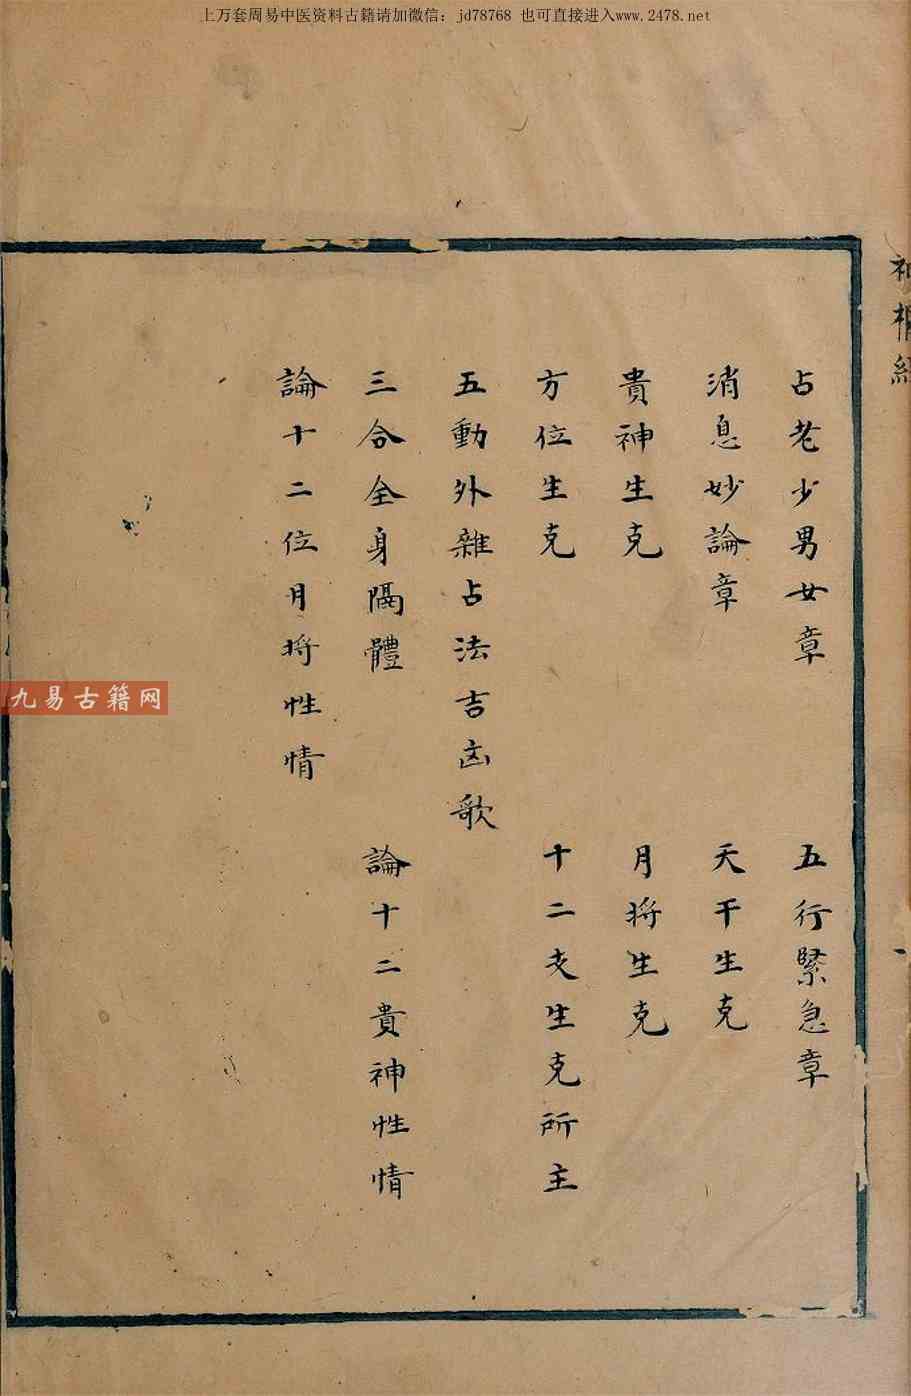 上万套周易中医资料古籍请加微信: jd78768 也可直接进入www.2478.net
占老少男女章
五行緊急章
消息妙論章
天干生克
貴神生克
月將生克
方位生克
十二支生克所主
五動外雜占法吉凶歌
三合全身隔體
論十二貴神性情
論十二位月將性情
九易古籍网